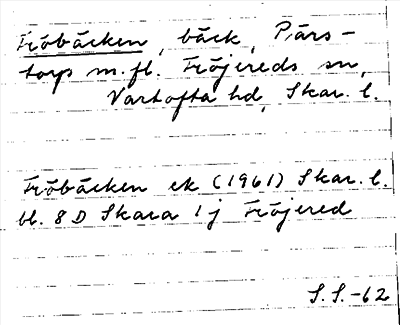 Fröbäcken, bäck, Pärs-
torp m.fl. Fröjereds sn,
Vartofta hd, Skar. l.
Fröbäcken ek (1961) Skar. l.
bl. 8 D Skara 1 j Fröjered
S.S.-62